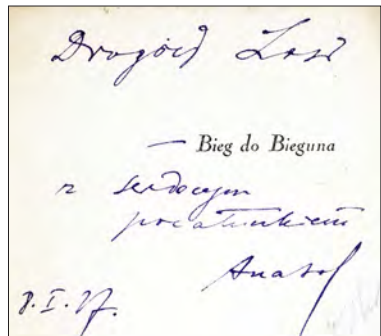 Drogiej Zosi
— Bieg do Bieguna
z serdecznym
pocałunkiem
Anatol
8.I.27.